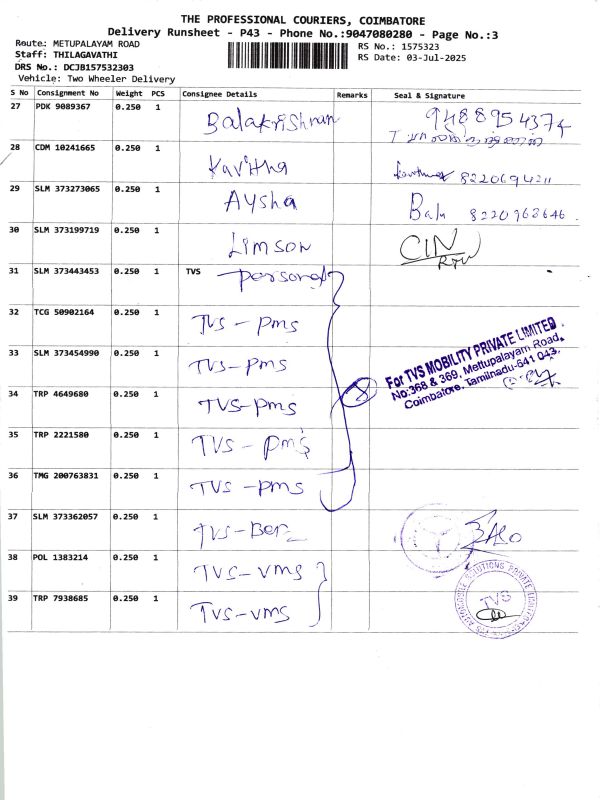 THE PROFESSIONAL COURIERS, COIMBATORE
Delivery Runsheet - P43 - Phone No.:9047080280 - Page No.:3
Route: METUPALAYAM ROAD
Staff: THILAGAVATHI
DRS No.: DCJB157532303
Vehicle: Two Wheeler Delivery
RS No.: 1575323
RS Date: 03-Jul-2025
S No Consignment No Weight PCS Consignee Details Remarks Seal & Signature
27 PDK 9089367 0.250 1 Balakrishnan 9488954374
28 CDM 10241665 0.250 1 Kavitha 8220694211
29 SLM 373273065 0.250 1 Aysha Balu 8220968646
30 SLM 373199719 0.250 1 Limson
31 SLM 373443453 0.250 1 TVS Personal
32 TCG 50902164 0.250 1 TVS - pms
33 SLM 373454990 0.250 1 TVS - pms
34 TRP 4649680 0.250 1 TVS - pms
35 TRP 2221580 0.250 1 TVS - pms
36 TMG 200763831 0.250 1 TVS - pms
For TVS MOBILITY PRIVATE LIMITED
No:368 & 369, Mettupalayam Road,
Coimbatore, Tamilnadu-641 043.
37 SLM 373362057 0.250 1
38 POL 1383214 0.250 1 TVS - VMS
39 TRP 7938685 0.250 1 TVS - VMS
TVS